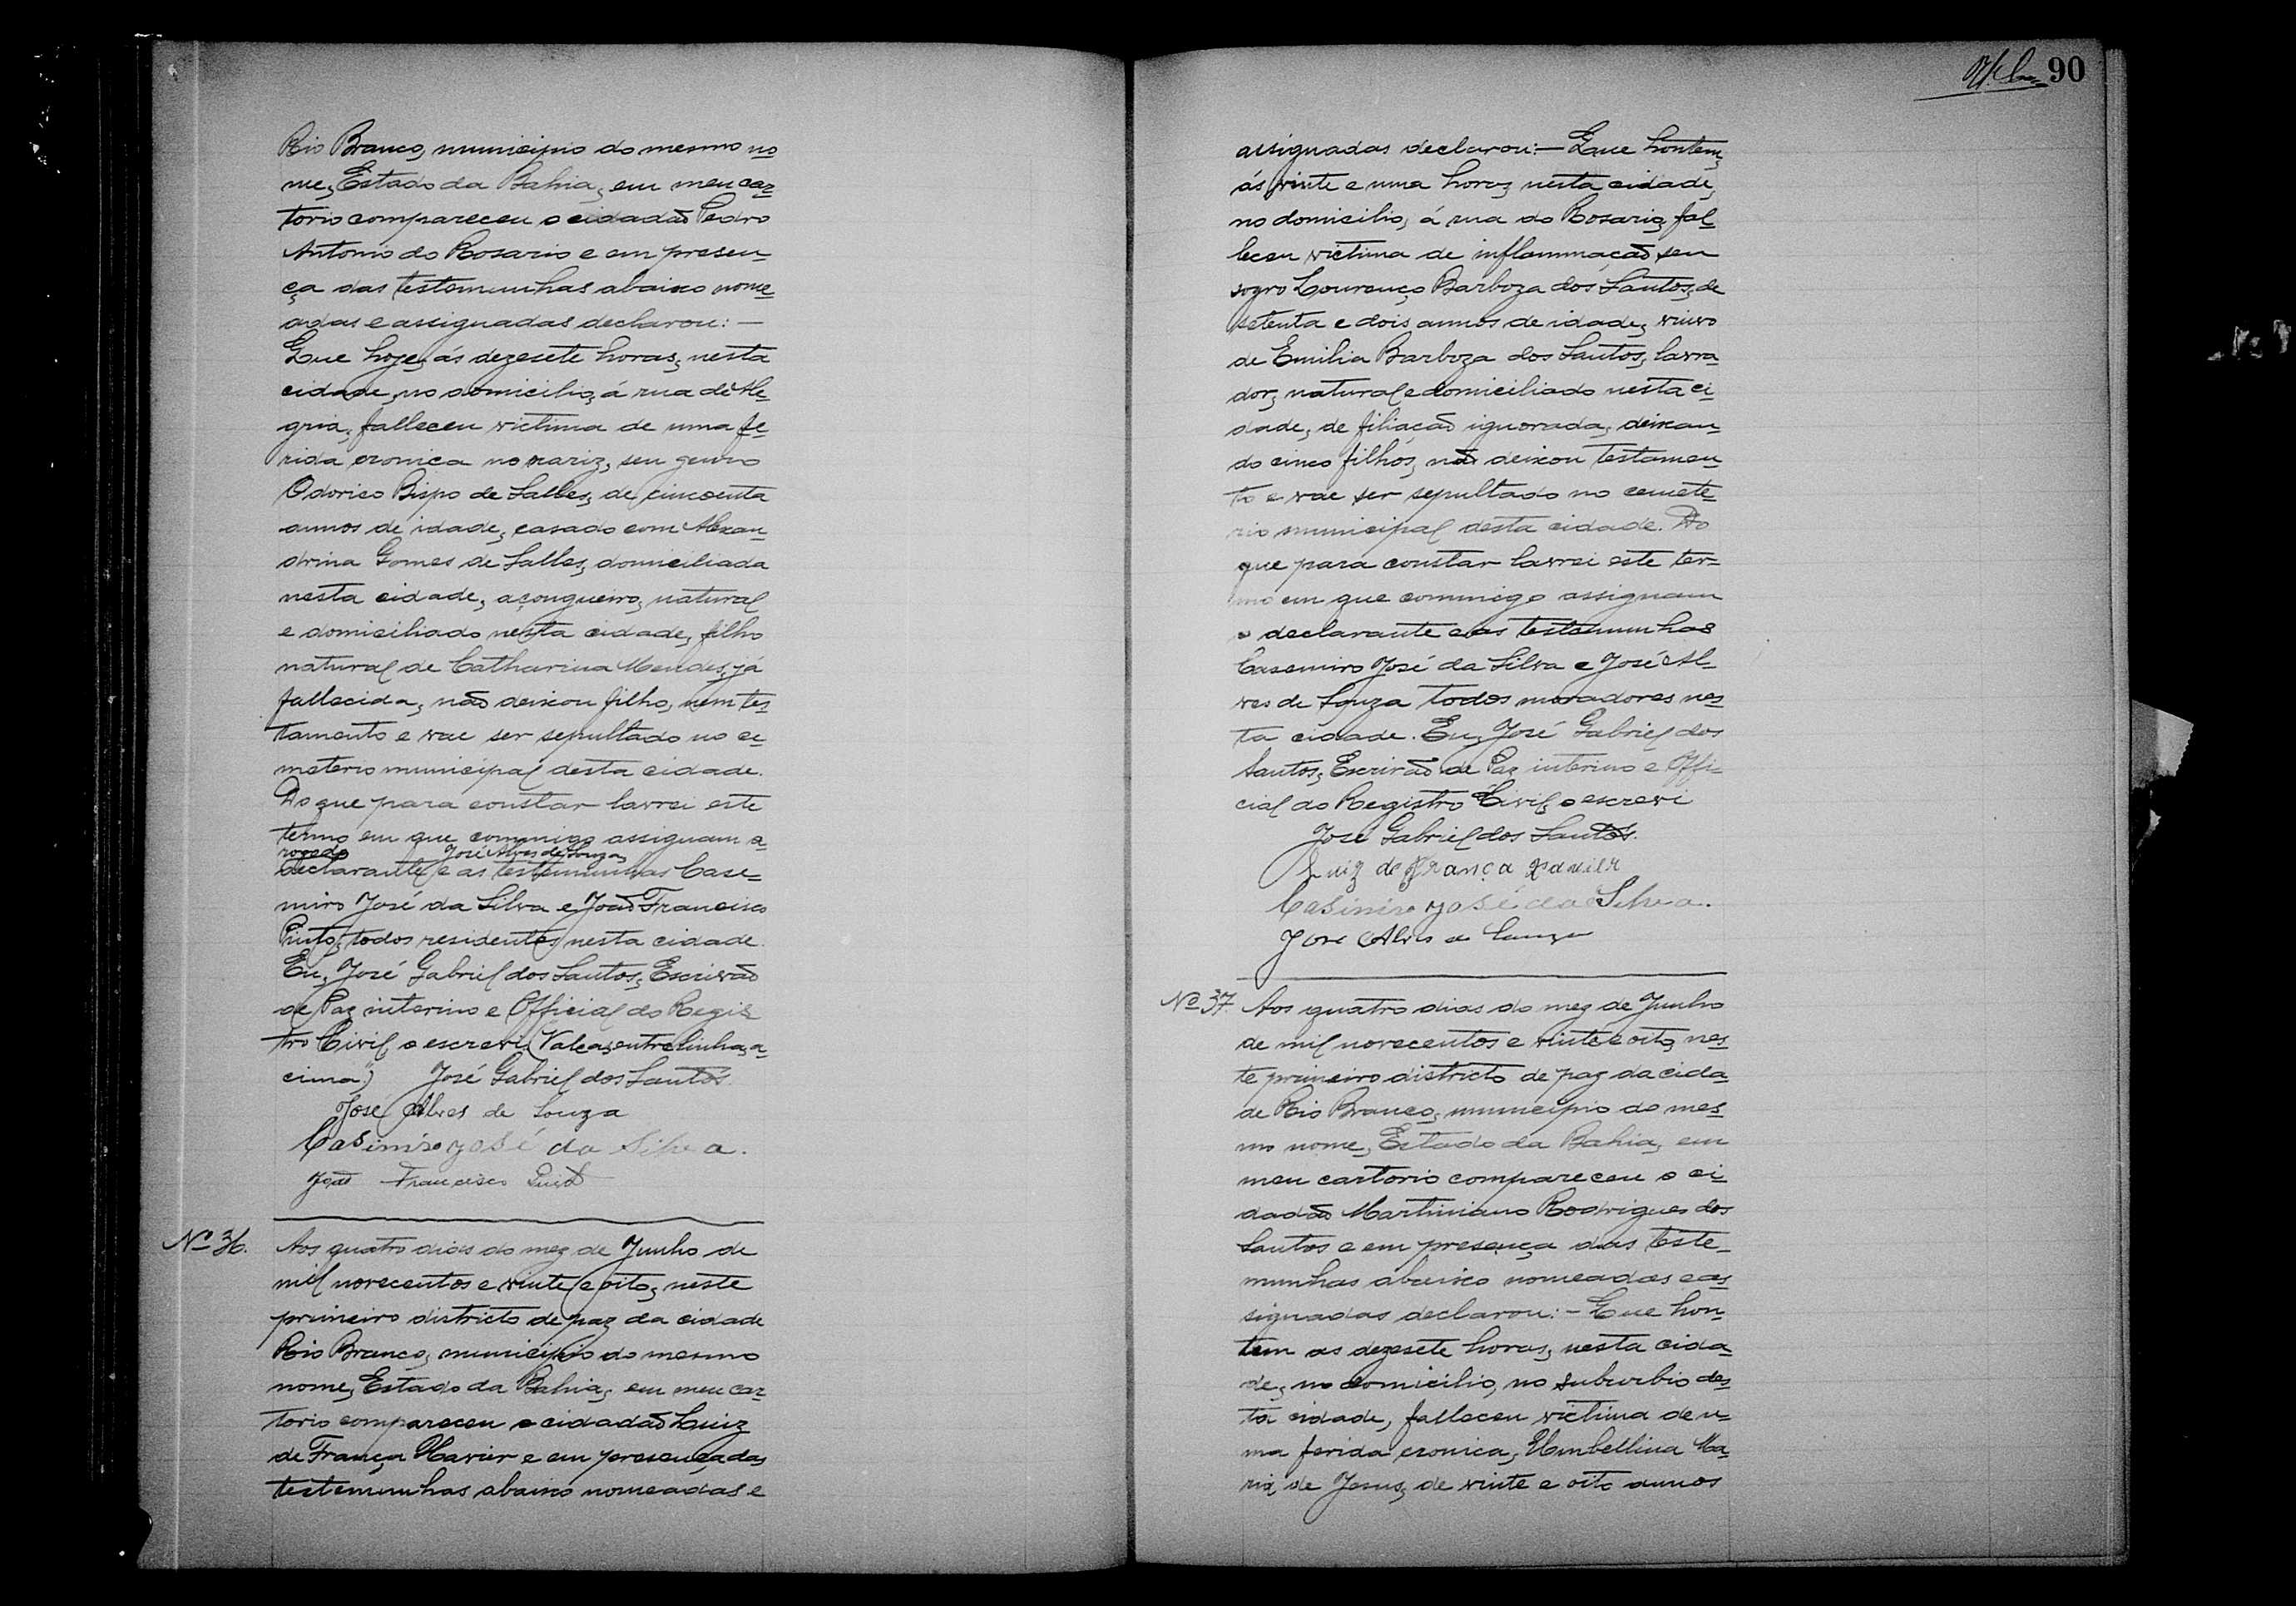 Rio Branco, municipio do mesmo no
me, Estado da Bahia, em meu car
torio compareceu o cidadão Pedro
Antonio do Rosario e em presen
ça das testemunhas abaixo nome
adas e assignadas declarou: —
Que hoje, ás dezesete horas, nesta
cidade, no domicilio, á rua de Ale
gria, falleceu victima de uma fe
rida cronica no nariz, seu genro
Odorico Bispo de Salles, de cincoenta
annos de idade, casado com Alexan
drina Gomes de Salles, domiciliada
nesta cidade, açougueiro, natural
e domiciliado nesta cidade, filho
natural de Catharina Mendes, já
fallecida, não deixou filho, nem tes
tamento e vae ser sepultado no ce
meterio municipal desta cidade.
Do que para constar lavrei este
termo em que commigo assignam a
rogo do José Alves de Souza,
declarante e as testemunhas Case
miro José da Silva e João Francisco
Pinto, todos residentes nesta cidade.
Eu, José Gabriel dos Santos, Escrivão
de Paz interino e Official do Regis
tro Civil, o escrevi (Vale a entrelinha, a
cima") José Gabriel dos Santos.
José Alves de Souza
Casimiro José da Silva.
João Francisco Pinto
Nº 36. Aos quatro dias do mez de Junho de
mil novecentos e vinte e oito, neste
primeiro districto de paz da cidade
Rio Branco, municipio do mesmo
nome, Estado da Bahia, em meu car
torio compareceu o cidadão Luiz
de França Xavier e em presença das
testemunhas abaixo nomeadas e
90
assignadas declarou: — Que hontem,
ás vinte e uma horas, nesta cidade,
no domicilio, á rua do Rosario, fal
leceu victima de inflammação seu
sogro Lourenço Barboza dos Santos, de
setenta e dois annos de idade, viuvo
de Emilia Barboza dos Santos, lavra
dor, natural e domiciliado nesta ci
dade, de filiação ignorada, deixan
do cinco filhos, não deixou testamen
to e vae ser sepultado no cemete
rio municipal desta cidade. Do
que para constar lavrei este ter=
mo em que commigo assignam
o declarante e as testemunhas
Casemiro José da Silva e José Al
ves de Souza todos moradores nes
ta cidade. Eu, José Gabriel dos
Santos, Escrivão de Paz interino e Offi
cial do Registro Civil, o escrevi
José Gabriel dos Santos.
Luiz de França Xavier
Casimiro José da Silva.
Jose Alves de Souza
Nº 37 Aos quatro dias do mez de Junho
de mil novecentos e vinte e oito, nes
te primeiro districto de paz da cida
de Rio Branco, municipio do mes
mo nome, Estado da Bahia, em
meu cartorio compareceu o ci
dadão Martiniano Rodrigues dos
Santos e em presença das teste
munhas abaixo nomeadas e as
signadas declarou: — Que hon
tem as dezesete horas, nesta cida
de, no domicilio, no suburbio des
ta cidade, falleceu victima de u
ma ferida cronica, Umbellina Ma
ria de Jesus, de vinte e oito annos